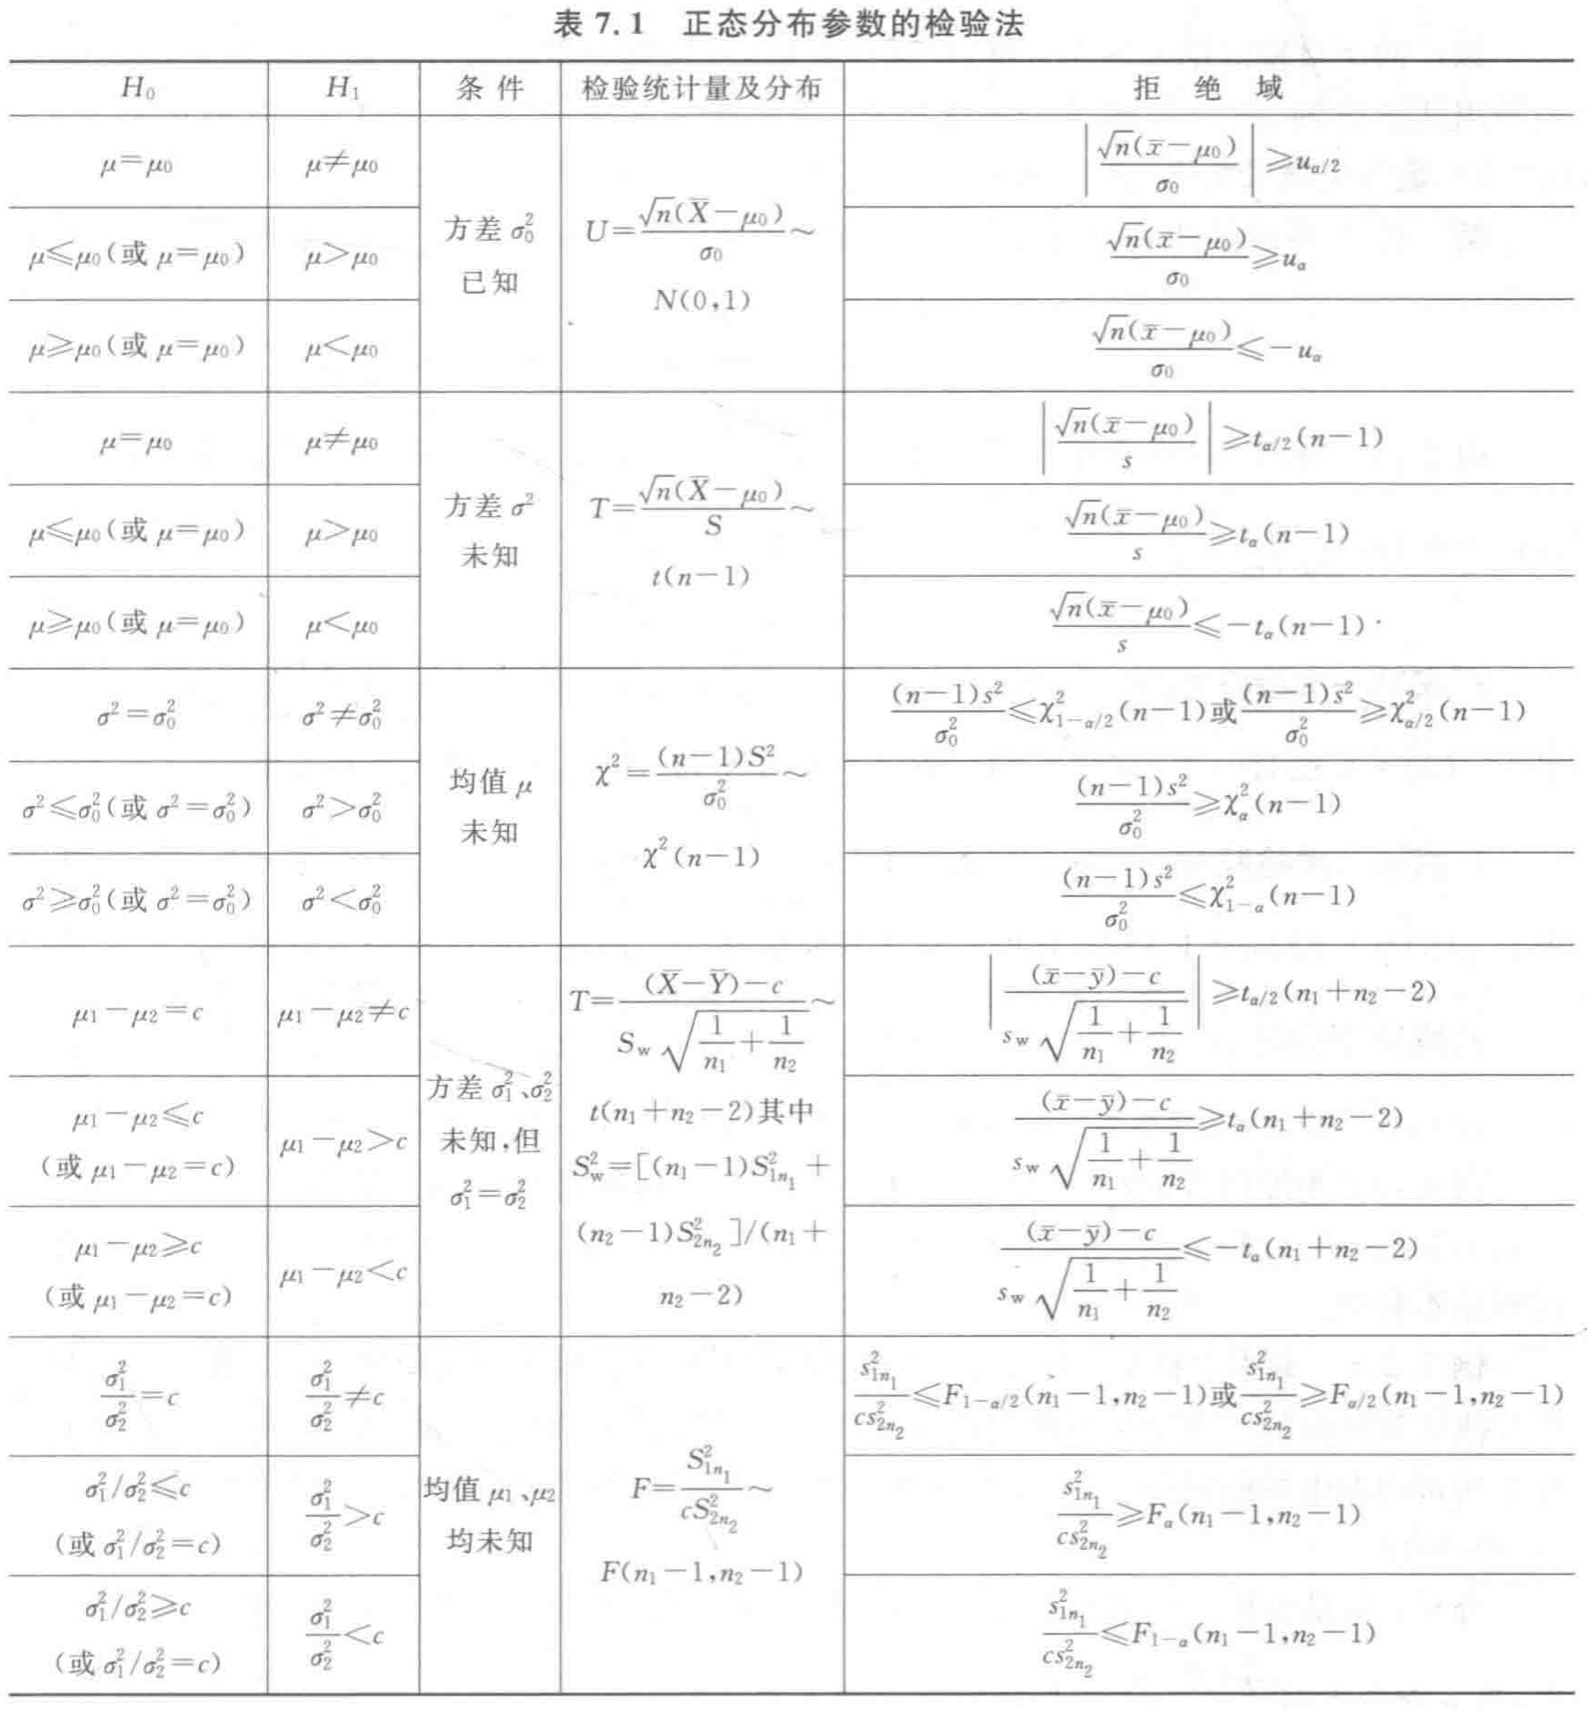 表 7.1 正态分布参数的检验法
H₀ H₁ 条 件 检验统计量及分布 拒 绝 域
μ=μ₀ μ≠μ₀ 方差 σ₀² 已知 U=√n(X̄−μ₀)/σ₀ ~ N(0,1) |√n(x̄−μ₀)/σ₀|≥u_{α/2}
μ≤μ₀(或 μ=μ₀) μ>μ₀ √n(x̄−μ₀)/σ₀≥u_α
μ≥μ₀(或 μ=μ₀) μ<μ₀ √n(x̄−μ₀)/σ₀≤−u_α
μ=μ₀ μ≠μ₀ 方差 σ² 未知 T=√n(X̄−μ₀)/S ~ t(n−1) |√n(x̄−μ₀)/s|≥t_{α/2}(n−1)
μ≤μ₀(或 μ=μ₀) μ>μ₀ √n(x̄−μ₀)/s≥t_α(n−1)
μ≥μ₀(或 μ=μ₀) μ<μ₀ √n(x̄−μ₀)/s≤−t_α(n−1)
σ²=σ₀² σ²≠σ₀² 均值 μ 未知 χ²=(n−1)S²/σ₀² ~ χ²(n−1) (n−1)s²/σ₀²≤χ²_{1−α/2}(n−1)或(n−1)s²/σ₀²≥χ²_{α/2}(n−1)
σ²≤σ₀²(或 σ²=σ₀²) σ²>σ₀² (n−1)s²/σ₀²≥χ²_α(n−1)
σ²≥σ₀²(或 σ²=σ₀²) σ²<σ₀² (n−1)s²/σ₀²≤χ²_{1−α}(n−1)
μ₁−μ₂=c μ₁−μ₂≠c 方差 σ₁²、σ₂² 未知,但 σ₁²=σ₂² T=((X̄−Ȳ)−c)/(S_w√(1/n₁+1/n₂)) ~ t(n₁+n₂−2)其中 S_w²=[(n₁−1)S²_{1n₁}+(n₂−1)S²_{2n₂}]/(n₁+n₂−2) |((x̄−ȳ)−c)/(s_w√(1/n₁+1/n₂))|≥t_{α/2}(n₁+n₂−2)
μ₁−μ₂≤c (或 μ₁−μ₂=c) μ₁−μ₂>c ((x̄−ȳ)−c)/(s_w√(1/n₁+1/n₂))≥t_α(n₁+n₂−2)
μ₁−μ₂≥c (或 μ₁−μ₂=c) μ₁−μ₂<c ((x̄−ȳ)−c)/(s_w√(1/n₁+1/n₂))≤−t_α(n₁+n₂−2)
σ₁²/σ₂²=c σ₁²/σ₂²≠c 均值 μ₁、μ₂ 均未知 F=S²_{1n₁}/(cS²_{2n₂}) ~ F(n₁−1,n₂−1) s²_{1n₁}/(cs²_{2n₂})≤F_{1−α/2}(n₁−1,n₂−1)或s²_{1n₁}/(cs²_{2n₂})≥F_{α/2}(n₁−1,n₂−1)
σ₁²/σ₂²≤c (或 σ₁²/σ₂²=c) σ₁²/σ₂²>c s²_{1n₁}/(cs²_{2n₂})≥F_α(n₁−1,n₂−1)
σ₁²/σ₂²≥c (或 σ₁²/σ₂²=c) σ₁²/σ₂²<c s²_{1n₁}/(cs²_{2n₂})≤F_{1−α}(n₁−1,n₂−1)